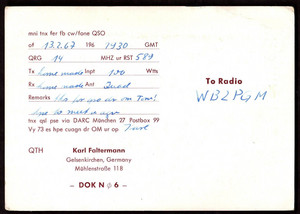 mni tnx fer fb cw/fone QSO
of 13.2.67 196 1930 GMT
QRG 14 MHZ ur RST 589
Tx home made Inpt 100 Wtts
Rx home made Ant Quad
Remarks
tnx qsl pse via DARC München 27 Postbox 99
Vy 73 es hpe cuagn dr OM ur op
To Radio
WB2PGM
QTH Karl Faltermann
Gelsenkirchen, Germany
Mühlenstraße 118
– DOK N φ 6 –